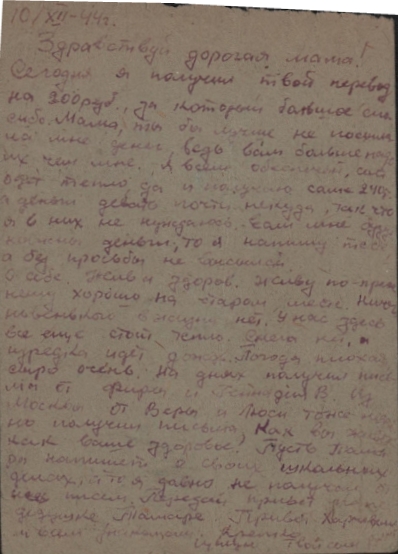 10/XII-44г.
Здравствуй дорогая мама!
Сегодня я получил твой перевод
на 200 руб., за который большое спа
сибо. Мама, ты бы лучше не посыла
ла мне денег, ведь вам больше нуж
их чем мне. Я всем обеспечен,
одет тепло, да и получаю сам 240р.
а деньги девать почти некуда, так что
я в них не нуждаюсь. Если мне
нужны деньги, то я напишу тебе
а без просьбы не высылай.
О себе. Жив и здоров. Живу по-преж
нему хорошо на старом месте. Ничего
новенького в жизни нет. У нас здесь
все еще стоит тепло. Снега нет, а
изредка идет дождь. Погода плохая,
сыро очень. На днях получил пись
ма от Фиры и Геннадия В. Из
Москвы от Веры и Люси тоже
но получил письма. Как вы живете
как ваше здоровье. Пусть
он напишет о своих школьных
делах, а то я давно не получал от
писем. Передай привет
дедушке Тамаре. Привет
и всем знакомым. Крепко
целую, Твой сын